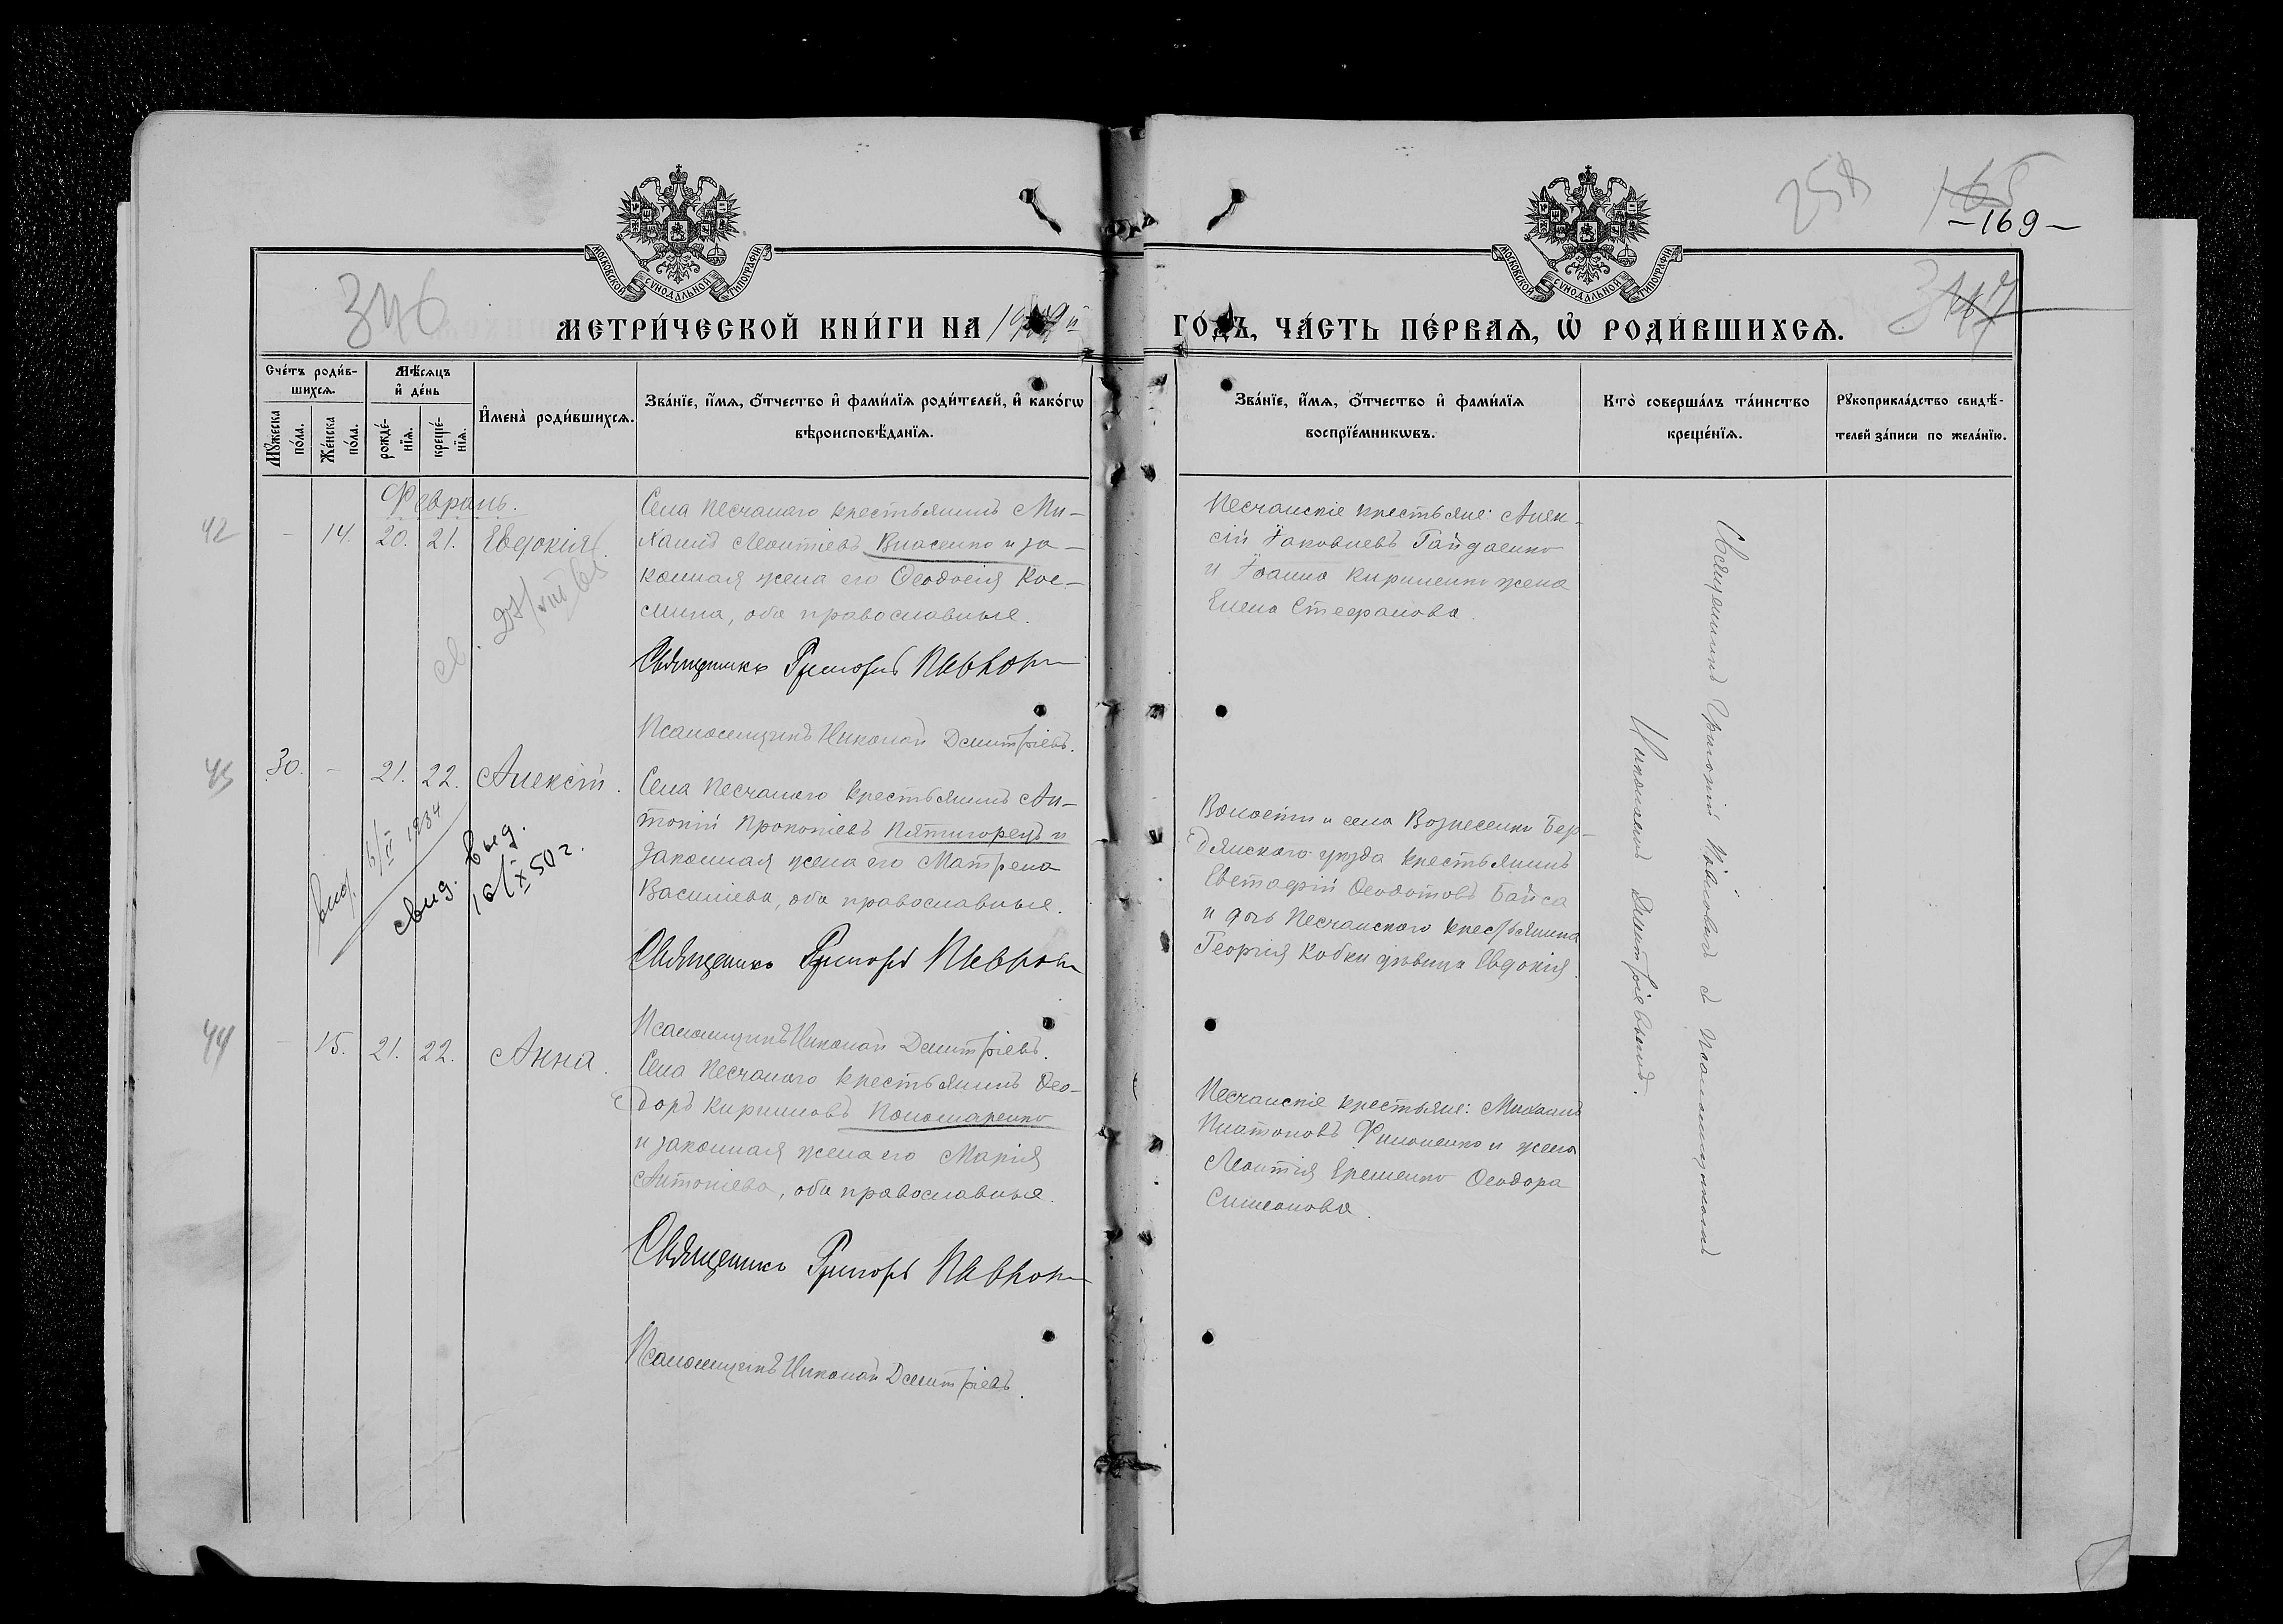 258
165
-169-
МОСКОВСКОЙ СѴНОДАЛЬНОЙ ТИПОГРАФІИ
МОСКОВСКОЙ СѴНОДАЛЬНОЙ ТИПОГРАФІИ
346
МЕТРИ́ЧЕСКОЙ КНИ́ГИ НА
ГО́ДЪ, ЧА́СТЬ ПЕ́РВАѦ, Ѡ҆ РОДИ́ВШИХСѦ.
Сче́тъ роди́в-
шихсѧ.
Мꙋ́жеска по́ла.
Же́нска по́ла.
Мѣ́сѧцъ
и҆ де́нь
рожде́-
нїѧ.
креще́-
нїѧ.
И҆мена̀ роди́вшихсѧ.
Зва́нїе, и҆́мѧ, ѻ҆́тчество и҆ фами́лїѧ роди́телей, и҆ како́гѡ
вѣроисповѣ́данїѧ.
Зва́нїе, и҆́мѧ, ѻ҆́тчество и҆ фами́лїѧ
воспрїе́мникѡвъ.
Кто̀ соверша́лъ та́инство
креще́нїѧ.
Рꙋкоприкла́дство свидѣ́-
телей за́писи по жела́нїю.
Февраль.
42
- 14. 20. 21. Евдокия.
Села Песчаного крестьянинъ Ми-
хаилъ Леонтіевъ Власенко и за-
конная жена его Ѳеодосія Кос-
мина, оба православные.
Священникъ Григорій Пѣвковъ
Псаломщикъ Николай Димитріевъ.
Песчанскіе крестьяне: Алек-
сій Іаковлевъ Гайдаенко
и Іоанна Кириленко жена
Елена Стефанова
43
30. - 21. 22. Алексій.
Села Песчаного крестьянинъ Ан-
тоній Прокопіевъ Пятигорецъ и
законная жена его Матрена
Василіева, оба православные.
Священникъ Григорій Пѣвковъ
Псаломщикъ Николай Димитріевъ.
1934
свид. выд.
16/X 50 г.
Волости и села Вознесенки Бер-
дянского уѣзда крестьянинъ
Евстафій Ѳеодотовъ Байса
и дочь Песчанского крестьянина
Георгія Кобки дѣвица Евдокія.
44
- 15. 21. 22. Анна.
Села Песчаного крестьянинъ Ѳео-
доръ Кирилловъ Пономаренко
и законная жена его Марія
Антоніева, оба православные.
Священникъ Григорій Пѣвковъ
Псаломщикъ Николай Димитріевъ.
Песчанскіе крестьяне: Михаилъ
Платоновъ Филоненко и жена
Леонтія Еременко Ѳеодора
Симеонова.
Священникъ Григорій Пѣвковъ съ псаломщикомъ
Николаемъ Димитріевымъ.